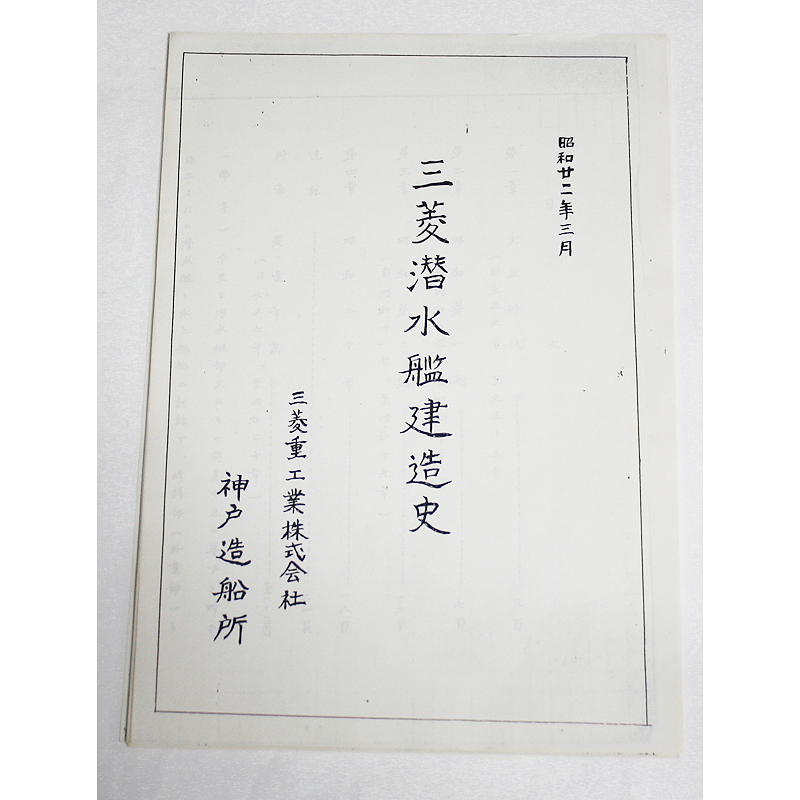 昭和廿二年三月
三菱潜水艦建造史
三菱重工業株式会社
神戸造船所